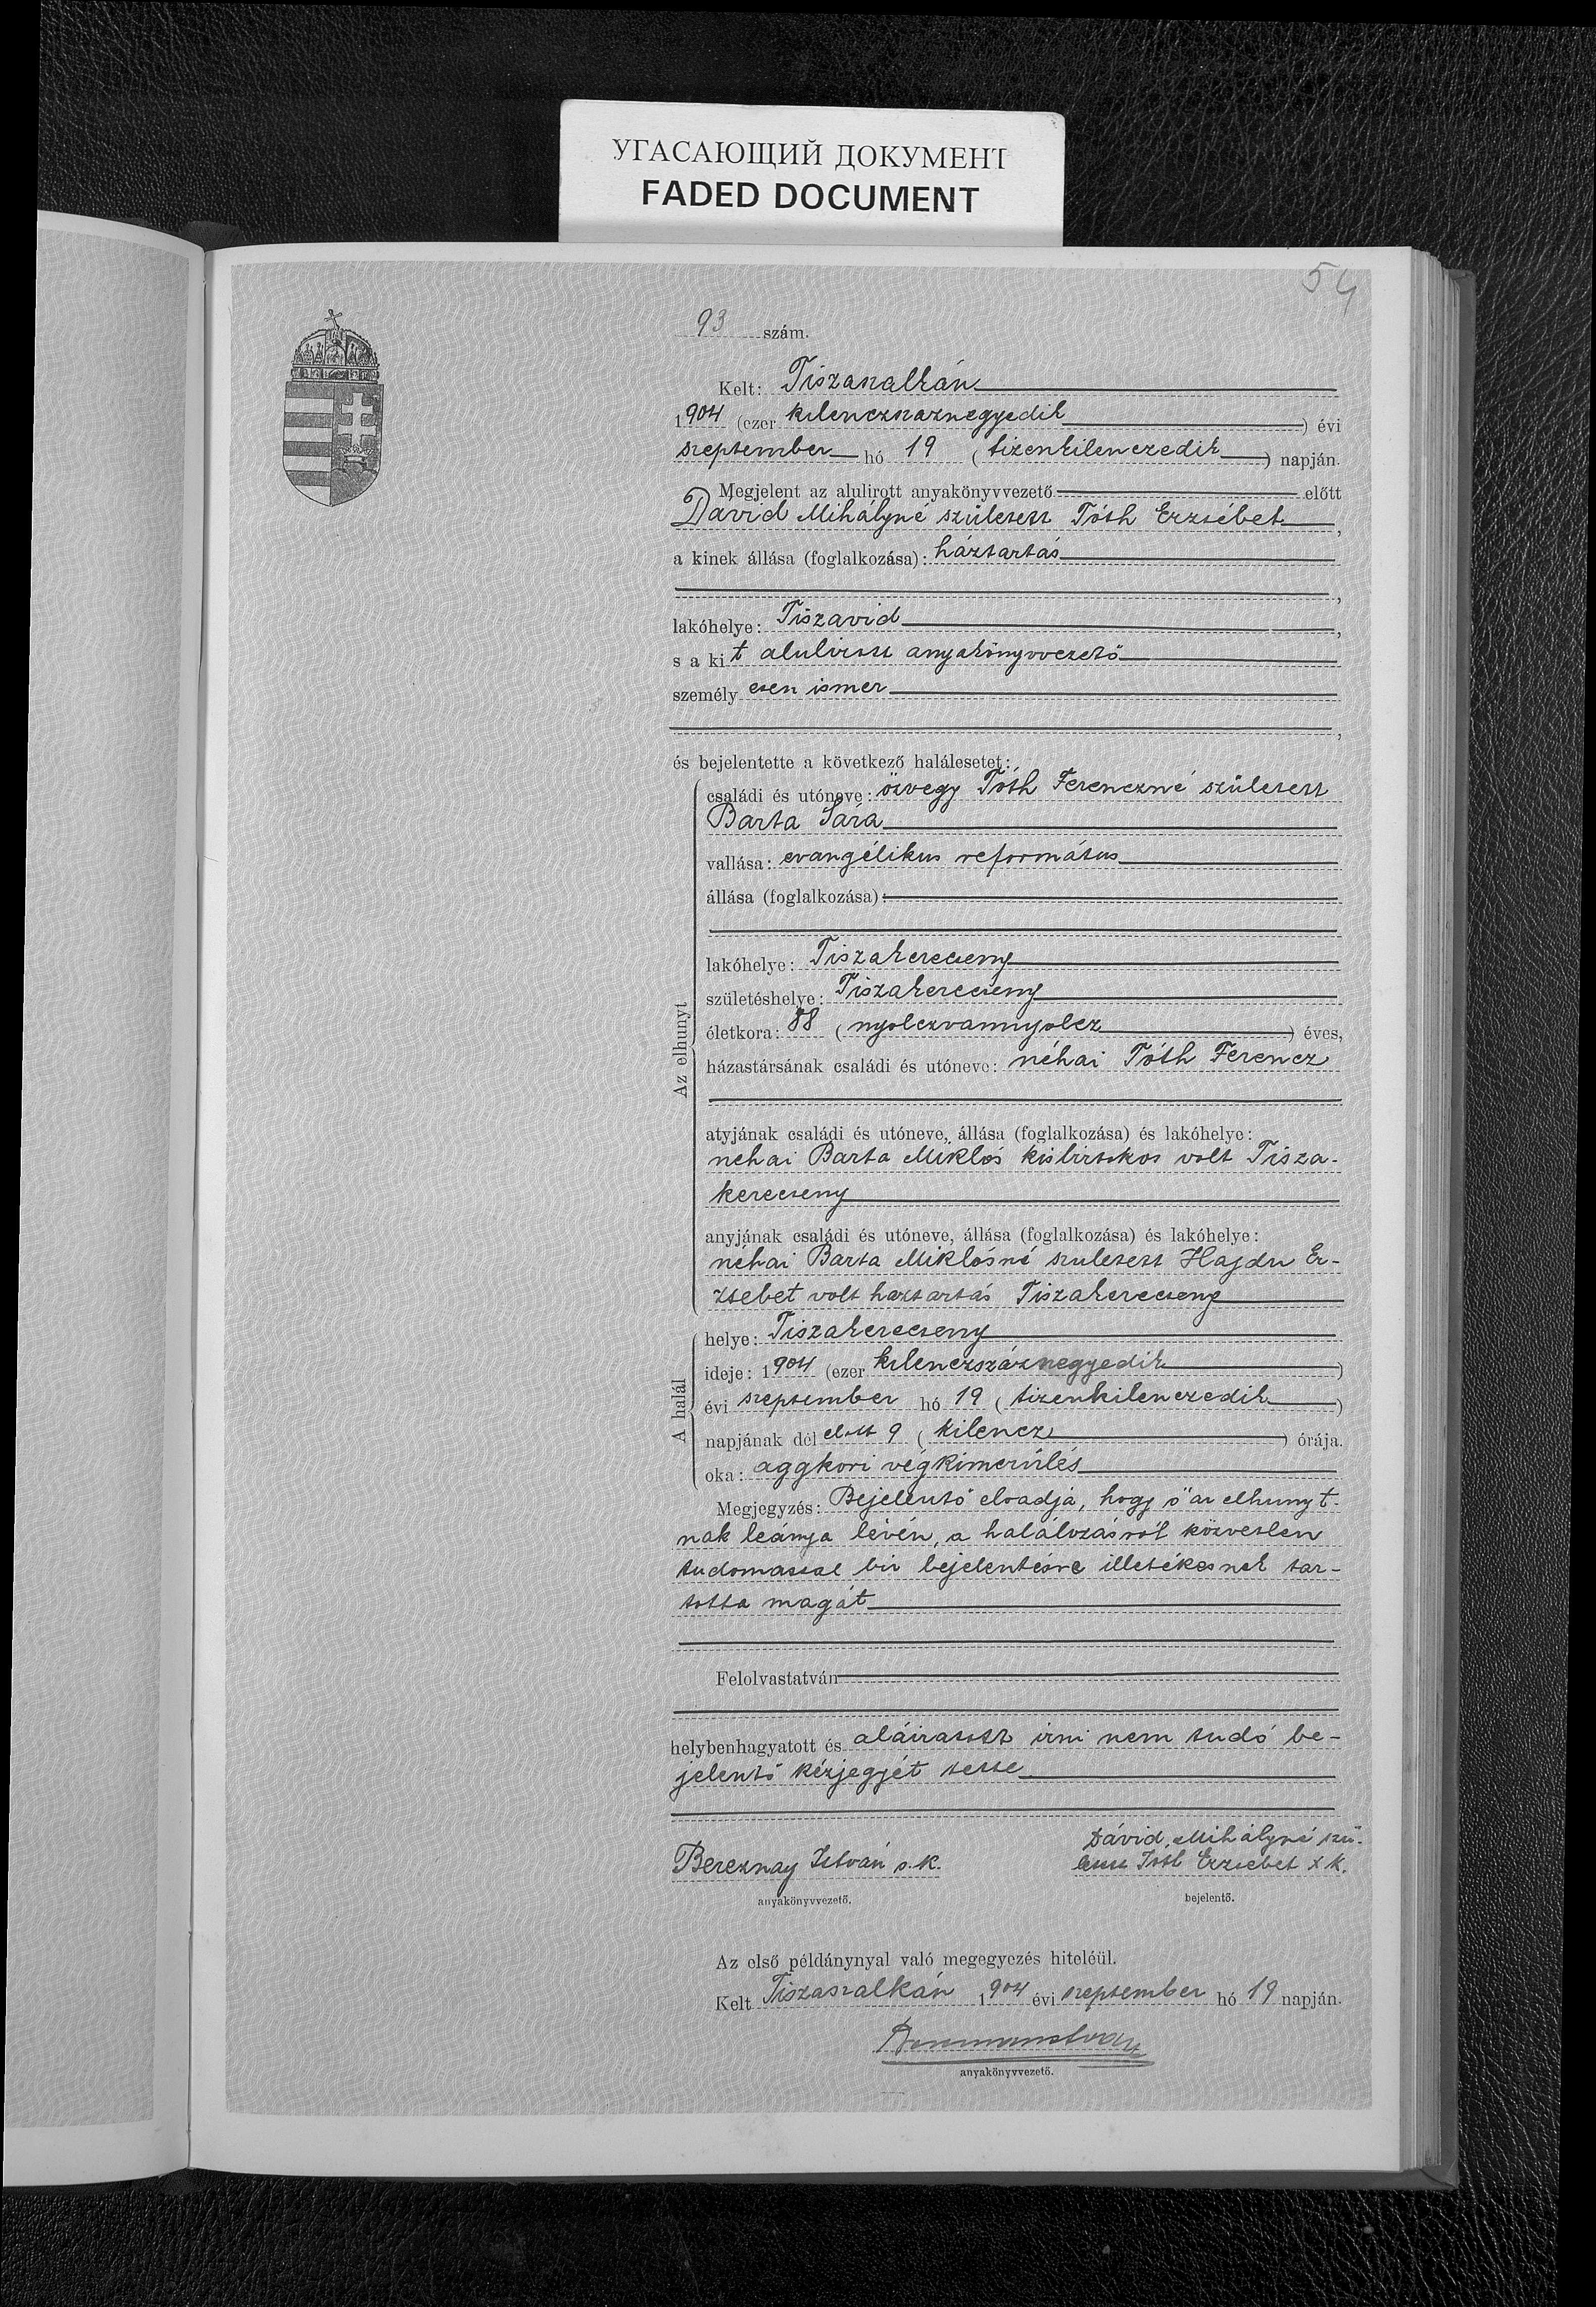 УГАСАЮЩИЙ ДОКУМЕНТ
FADED DOCUMENT
54
93 szám.
Kelt: Tiszaszalkán
1904 (ezer kilenczszáznegyedik) évi
szeptember hó 19 (tizenkilenczedik) napján.
Megjelent az alulirott anyakönyvvezető előtt
Dávid Mihályné született Tóth Erzsébet,
a kinek állása (foglalkozása): háztartás
,
lakóhelye: Tiszavid,
s a kit alulirott anyakönyvvezető
személyesen ismer
,
és bejelentette a következő halálesetet:
Az elhunyt
családi és utóneve: özvegy Tóth Ferenczné született
Barta Sára
vallása: evangélikus református
állása (foglalkozása):
lakóhelye: Tiszakerecseny
születéshelye: Tiszakerecseny
életkora: 88 (nyolczvannyolcz) éves,
házastársának családi és utóneve: néhai Tóth Ferencz
atyjának családi és utóneve, állása (foglalkozása) és lakóhelye:
néhai Barta Miklós kisbirtokos volt Tisza-
kerecseny
anyjának családi és utóneve, állása (foglalkozása) és lakóhelye:
néhai Barta Miklósné szuletett Hajdu Er-
zsebet volt haztartás Tiszakerecseny
A halál
helye: Tiszakerecseny
ideje: 1904 (ezer kilenczszáznegyedik)
évi szeptember hó 19 (tizenkilenczedik)
napjának délelőtt 9 (kilencz) órája.
oka: aggkori végkimerülés
Megjegyzés: Bejelentő eloadja, hogy ő az elhunyt-
nak leánya lévén, a halálozásról közvetlen
tudomással bir bejelentésre illetékesnek tar-
totta magát
Felolvastatván
helybenhagyatott és aláiratott irni nem tudó be-
jelentő kézjegyét tette
Bereznay István s. k.
anyakönyvvezető.
Dávid Mihályné szü-
letett Tóth Erzsebet x k.
bejelentő.
Az első példánynyal való megegyezés hiteléül.
Kelt Tiszaszalkán 1904 évi szeptember hó 19 napján.
anyakönyvvezető.